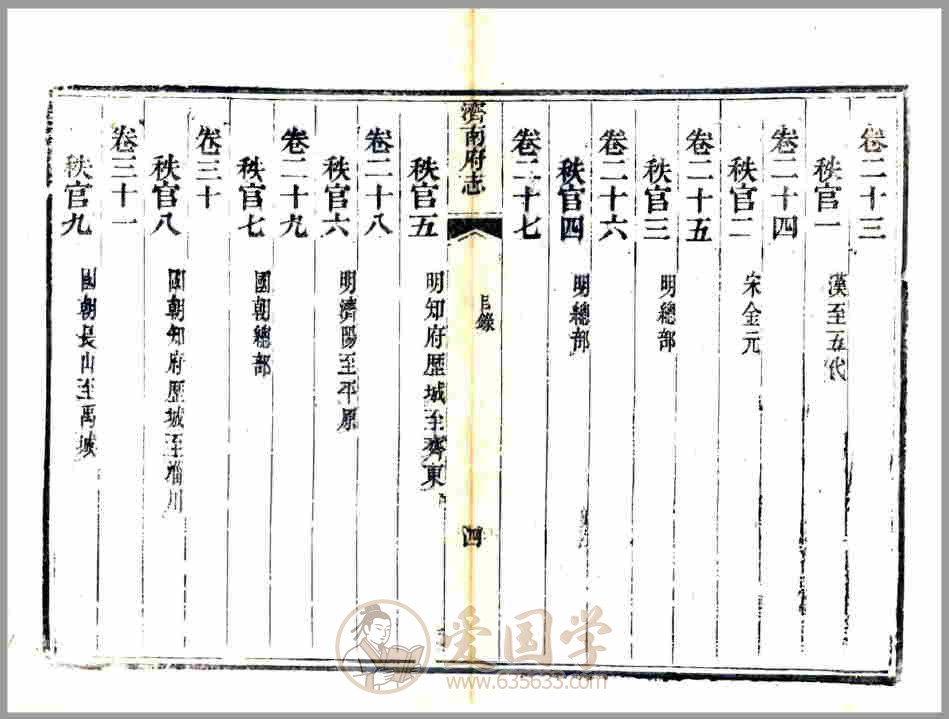 卷二十三
秩官一 漢至五代
卷二十四
秩官二 宋金元
卷二十五
秩官三 明總部
卷二十六
秩官四 明總部
卷二十七
濟南府志
目錄
四
秩官五 明知府歷城至齊東
卷二十八
秩官六 明濟陽至平原
卷二十九
秩官七 國朝總部
卷三十
秩官八 國朝知府歷城至淄川
卷三十一
秩官九 國朝長山至禹城
爱国学
www.635633.com